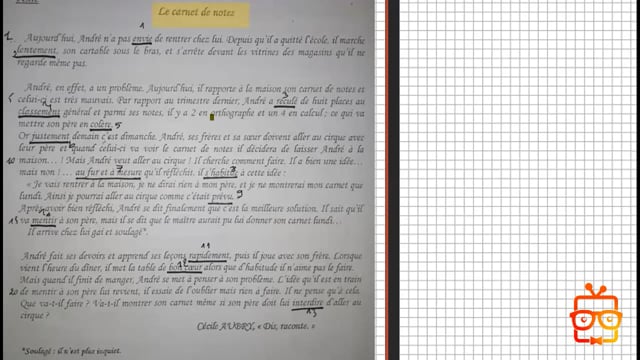 Le carnet de notes
1
1. Aujourd'hui, André n'a pas envie de rentrer chez lui. Depuis qu'il a quitté l'école, il marche
2 lentement, son cartable sous le bras, et s'arrête devant les vitrines des magasins qu'il ne
regarde même pas.
André, en effet, a un problème. Aujourd'hui, il rapporte à la maison son carnet de notes et
3
5 celui-ci est très mauvais. Par rapport au trimestre dernier, André a réculé de huit places au
classement général et parmi ses notes, il y a 2 en orthographe et un 4 en calcul ; ce qui va
mettre son père en colère. 5
Or justement demain c'est dimanche. André, ses frères et sa sœur doivent aller au cirque avec
leur père et quand celui-ci va voir le carnet de notes il décidera de laisser André à la
10 maison… ! Mais André veut aller au cirque ! Il cherche comment faire. Il a bien une idée…
mais non ! … au fur et à mesure qu'il réfléchit, il s'habitue à cette idée :
« Je vais rentrer à la maison, je ne dirai rien à mon père, et je ne montrerai mon carnet que
lundi. Ainsi je pourrai aller au cirque comme c'était prévu. 9
Après avoir bien réfléchi, André se dit finalement que c'est la meilleure solution. Il sait qu'il
15 va mentir à son père, mais il se dit que le maître aurait pu lui donner son carnet lundi…
Il arrive chez lui gai et soulagé*.
11
André fait ses devoirs et apprend ses leçons rapidement, puis il joue avec son frère. Lorsque
vient l'heure du dîner, il met la table de bon cœur alors que d'habitude il n'aime pas le faire.
Mais quand il finit de manger, André se met à penser à son problème. L'idée qu'il est en train
20 de mentir à son père lui revient, il essaie de l'oublier mais rien à faire. Il ne pense qu'à cela.
Que va-t-il faire ? Va-t-il montrer son carnet même si son père doit lui interdire d'aller au
cirque ?
13
Cécile AUBRY, « Dis, raconte. »
*Soulagé : il n'est plus inquiet.